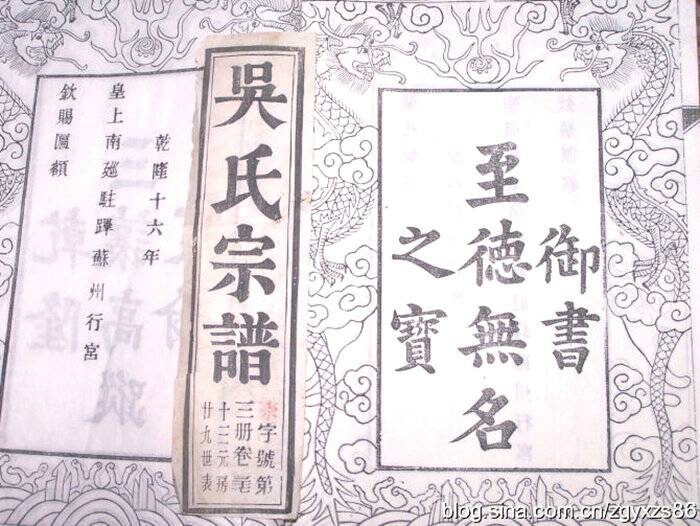 御書
至德無名
之寶
吳氏宗譜
字號第
三册卷
廿九世表
乾隆十六年
皇上南廵駐蹕蘇州行宮
欽賜匾額
blog.sina.com.cn/zgyxzs86